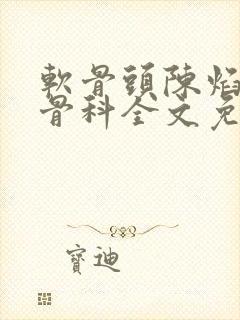 軟骨頭陳焰
骨科全文免
寶迪